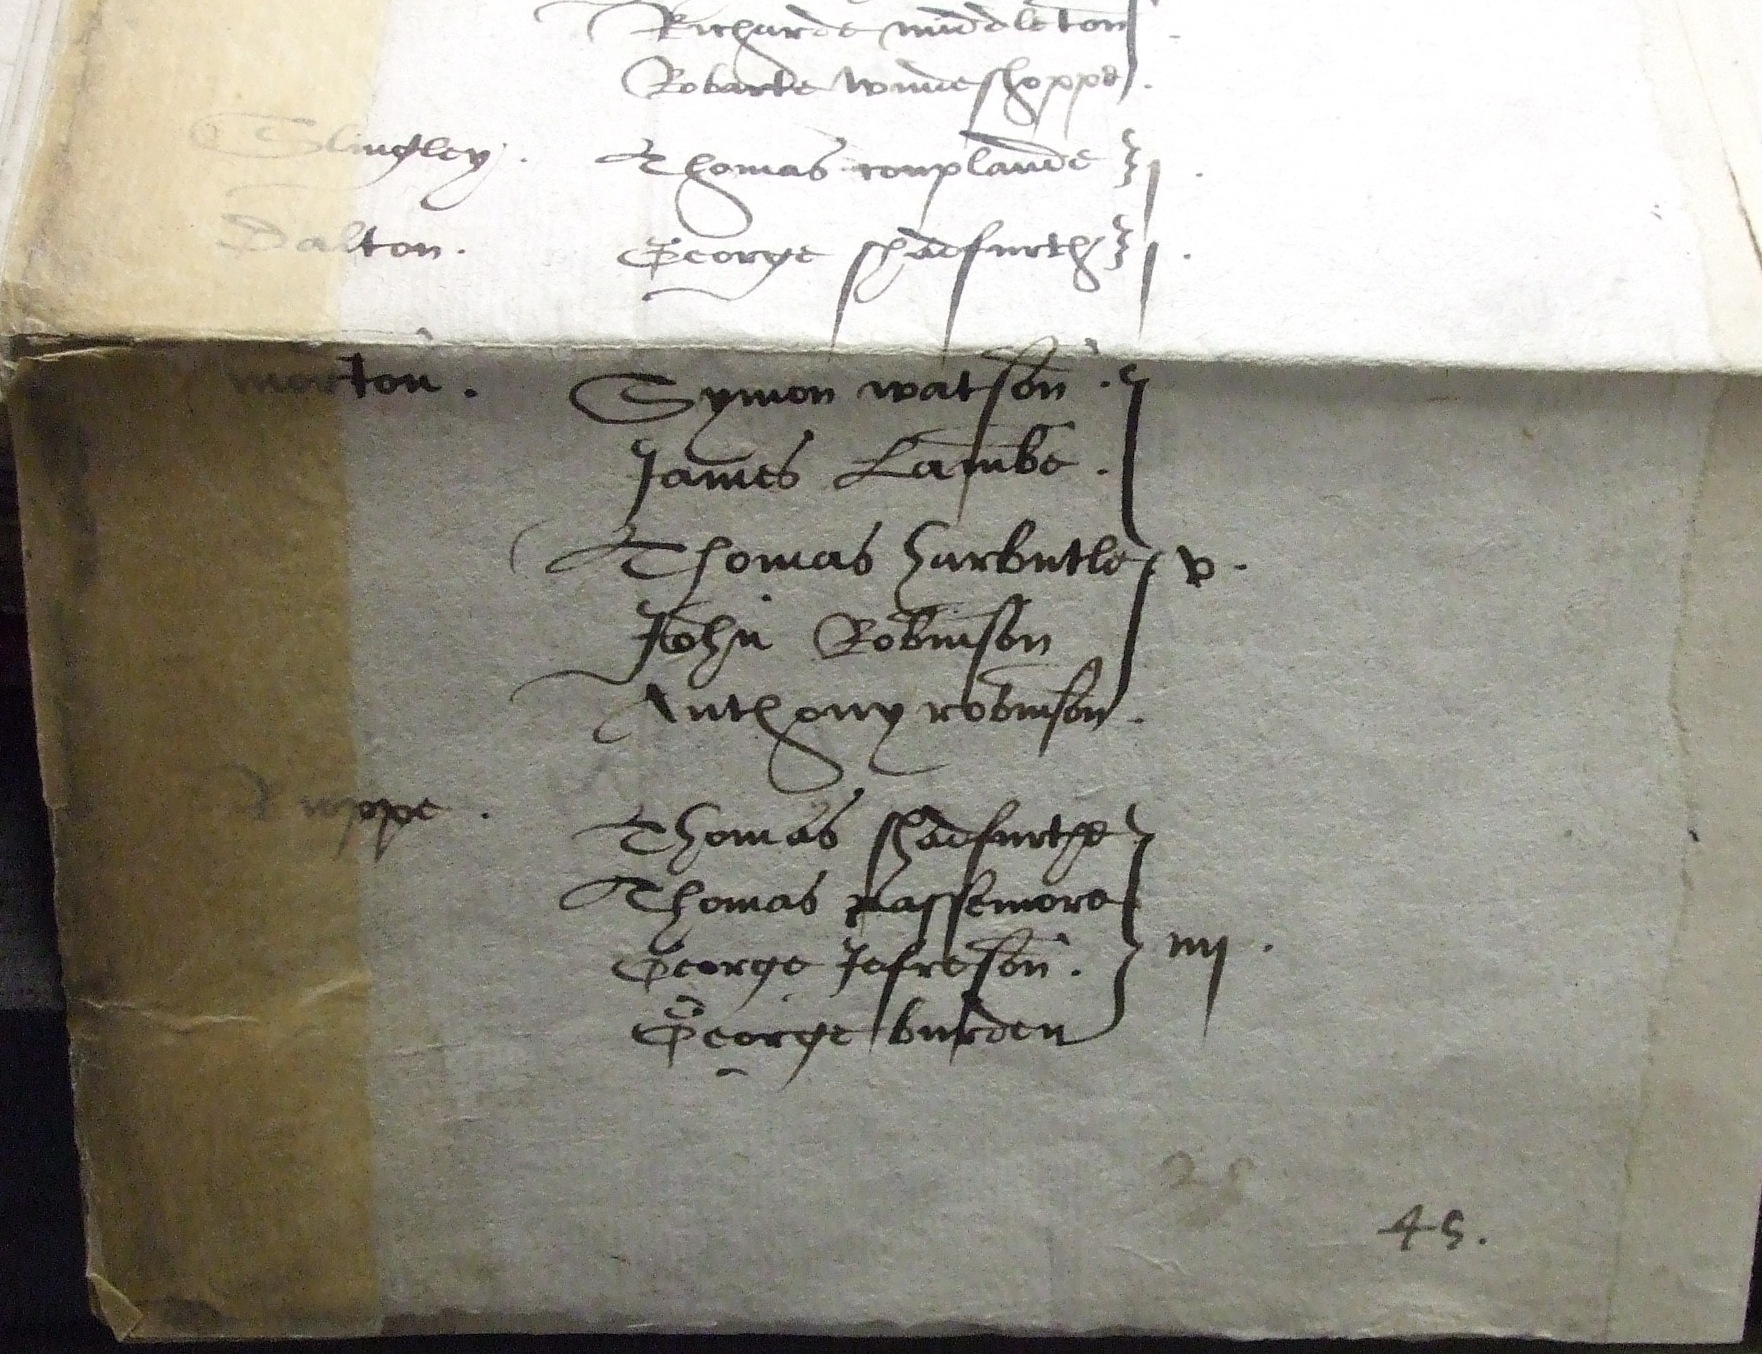 Richarde middleton
Robarte windeshoppe.
Slingley. Thomas couplande j.
Dalton. George shadfurth j.
morton. Symon watson.
James Lambe.
Thomas harbutle v.
John Robinson
Anthony robinson.
Thomas shadfurthe
Thomas passemore
George Jefreson. iiij.
George burden
45.